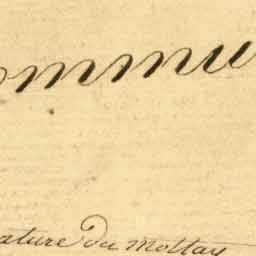 ommu
ature Du Mottay